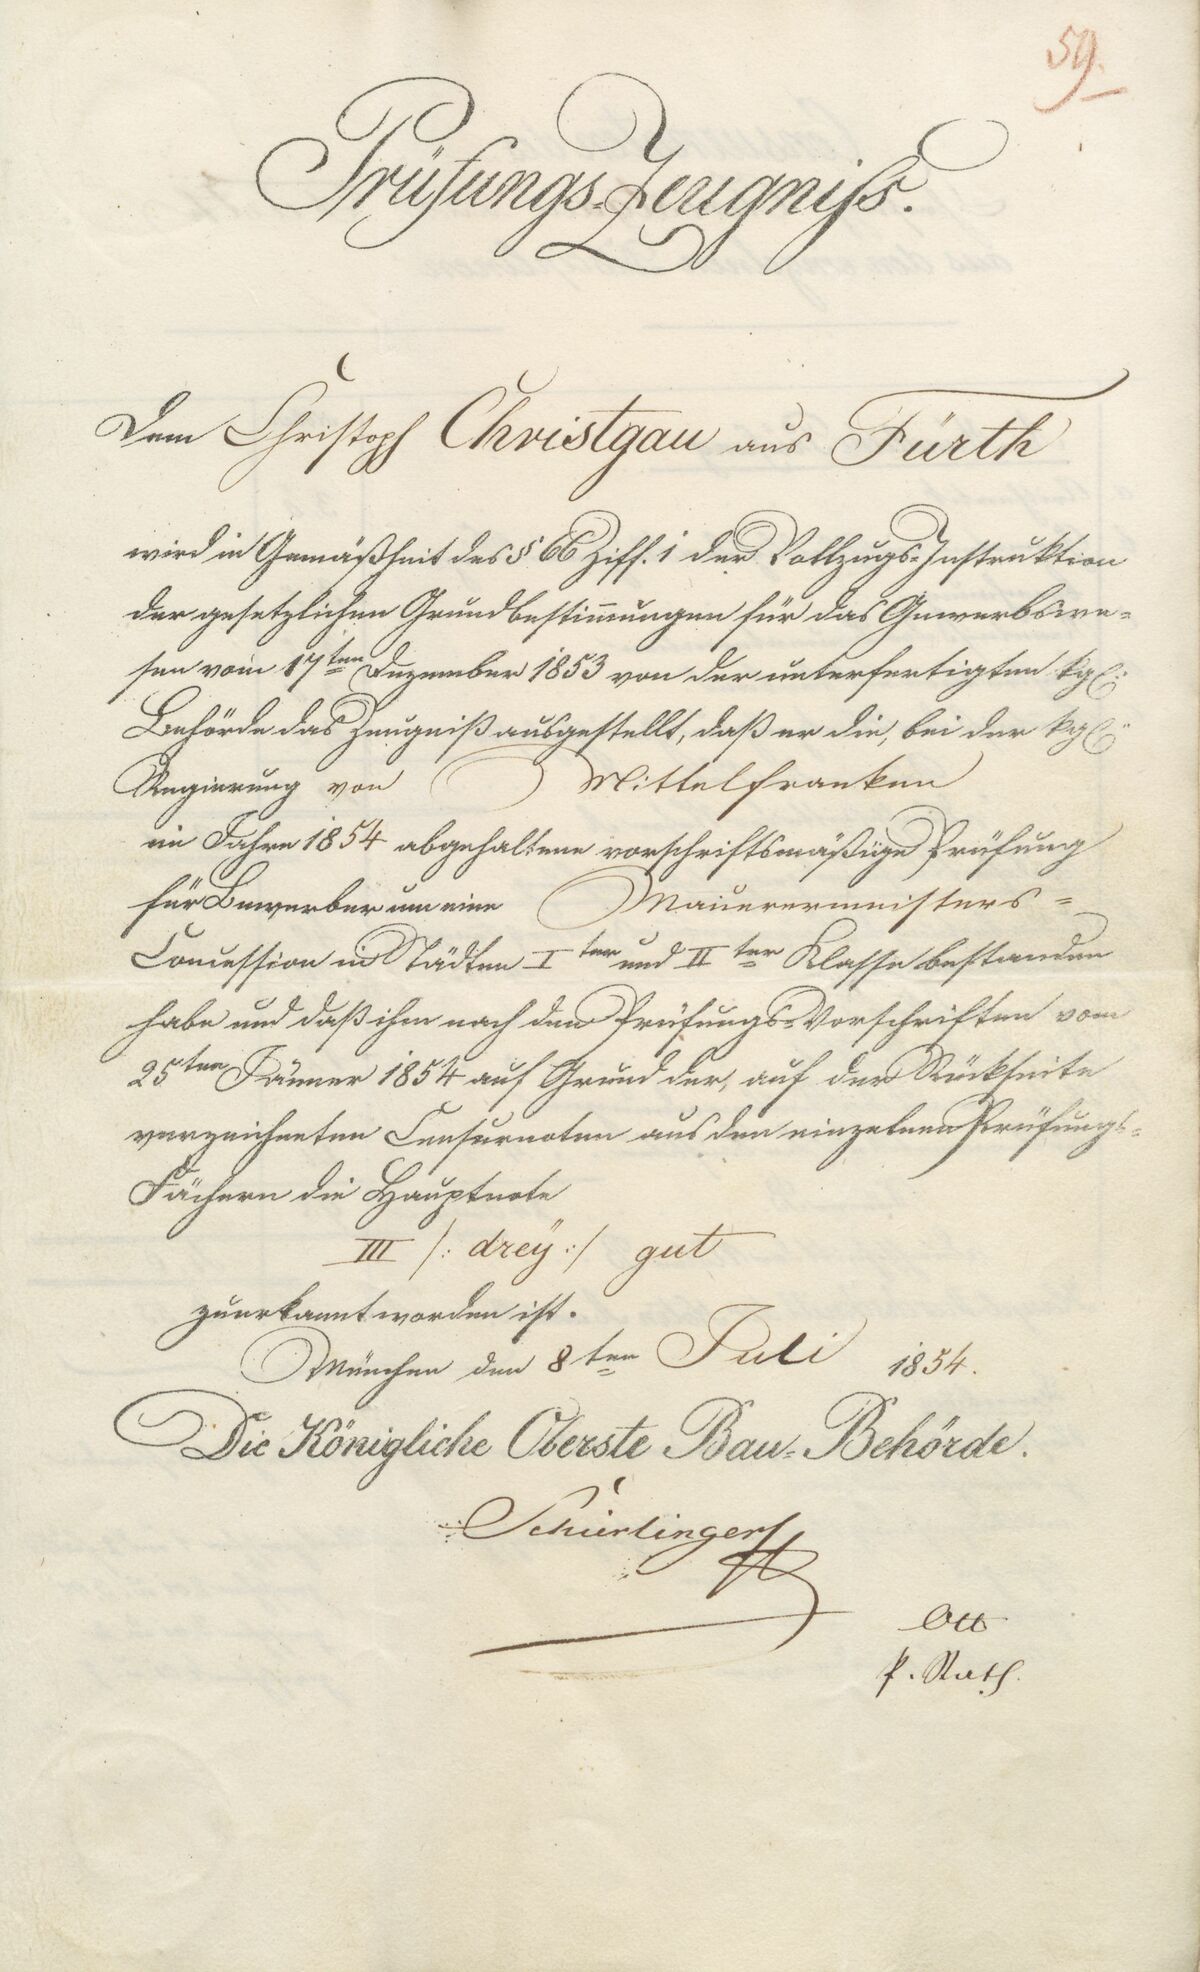 59.
Prüfungs-Zeugniß.
Dem Christoph Christgau aus Fürth
wird in Gemäßheit des § 66 Ziff. 1 der Vollzugs-Instruktion
der gesetzlichen Grundbestim̅ungen für das Gewerbswe=
sen vom 17ten Dezember 1853 von der unterfertigten kgl:
Behörde das Zeugniß ausgestellt, daß er die, bei der kgl:
Regierung von Mittelfranken
im Jahre 1854 abgehaltene vorschriftsmäßige Prüfung
für Bewerber um eine Mauerermeisters=
Concession in Städten I ter und II ter Klasse bestanden
habe und daß ihm nach den Prüfungs-Vorschriften vom
25ten Jänner 1854 auf Grund der, auf der Rückseite
verzeichneten Censurnoten aus den einzelnen Prüfungs=
Fächern die Hauptnote
III /: drey :/ gut
zuerkannt worden ist.
München den 8ten Juli 1854.
Die Königliche Oberste Bau-Behörde.
Schierlinger
Ott